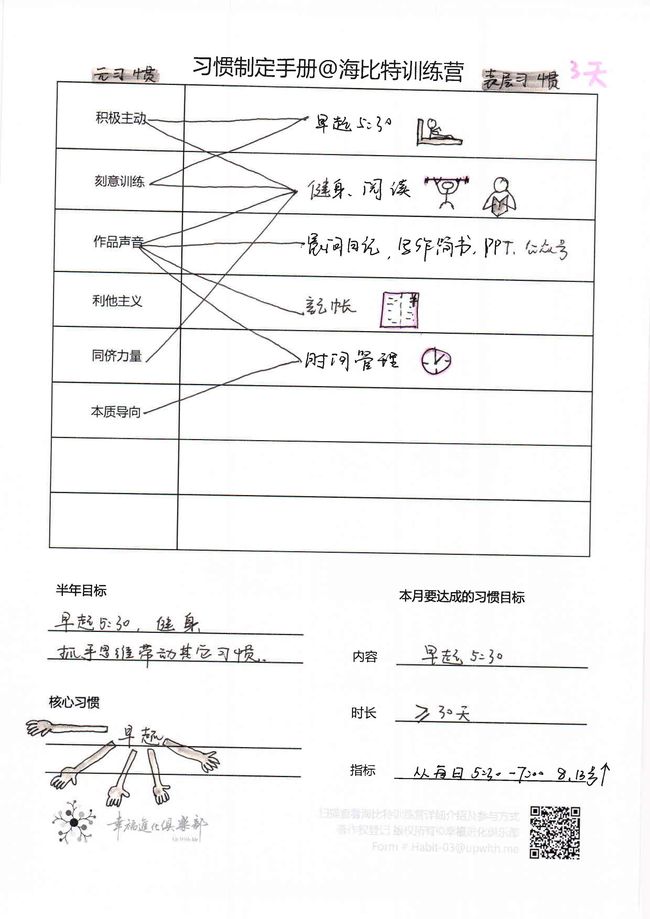 习惯制定手册@海比特训练营
元习惯
表层习惯
3天
积极主动
早起5:30
刻意训练
健身、阅读
作品声音
晨间日记,写作简书.PPT.公众号
利他主义
记帐
同侪力量
时间管理
本质导向
半年目标
早起5:30,健身
抓手思维带动其它习惯.
本月要达成的习惯目标
内容
早起5:30
核心习惯
早起
时长
≥30天
指标
从每日5:30-7:00 8.13号↑
幸福進化俱樂部
Up With Me
扫描查看海比特训练营详细介绍及参与方式
著作权登记 版权所有©幸福进化俱乐部
Form # Habit-03@upwith.me